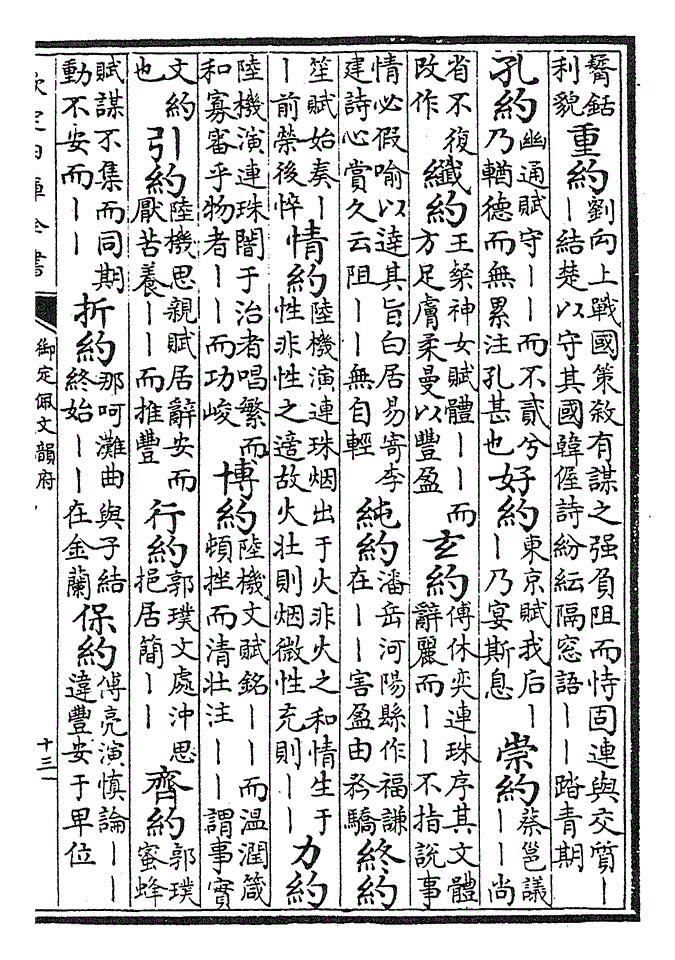 銛
利貌
重約
劉向上戰國策敘有謀之强負阻而恃固連與交質｜
｜結楚以守其國韓偓詩紛紜隔窓語｜｜踏青期
孔約
幽通賦守｜｜而不貳兮
乃輶德而無累注孔甚也
好約
東京賦我后｜
｜乃宴斯息
崇約
蔡邕議
｜｜尚
省不復
改作
纖約
王粲神女賦體｜｜而
方足膚柔曼以豐盈
玄約
傅休奕連珠序其文體
辭麗而｜｜不指說事
情必假喻以達其旨白居易寄李
建詩心賞久云阻｜｜無自輕
純約
潘岳河陽縣作福謙
在｜｜害盈由矜驕
終約
笙賦始奏｜
｜前榮後悴
情約
陸機演連珠烟出于火非火之和情生于
性非性之適故火壯則烟微性充則｜｜
力約
陸機演連珠闇于治者唱繁而
和寡審乎物者｜｜而功峻
博約
陸機文賦銘｜｜而溫潤箴
頓挫而清壯注｜｜謂事實
文約
也
引約
陸機思親賦居辭安而
厭苦養｜｜而推豐
行約
郭璞文處沖思
挹居簡｜｜
齊約
郭璞
蜜蜂
賦謀不集而同期
動不安而｜｜
折約
那呵灘曲與子結
終始｜｜在金蘭
保約
傅亮演慎論｜｜
違豐安于卑位
欽定四庫全書
御定佩文韻府
十三